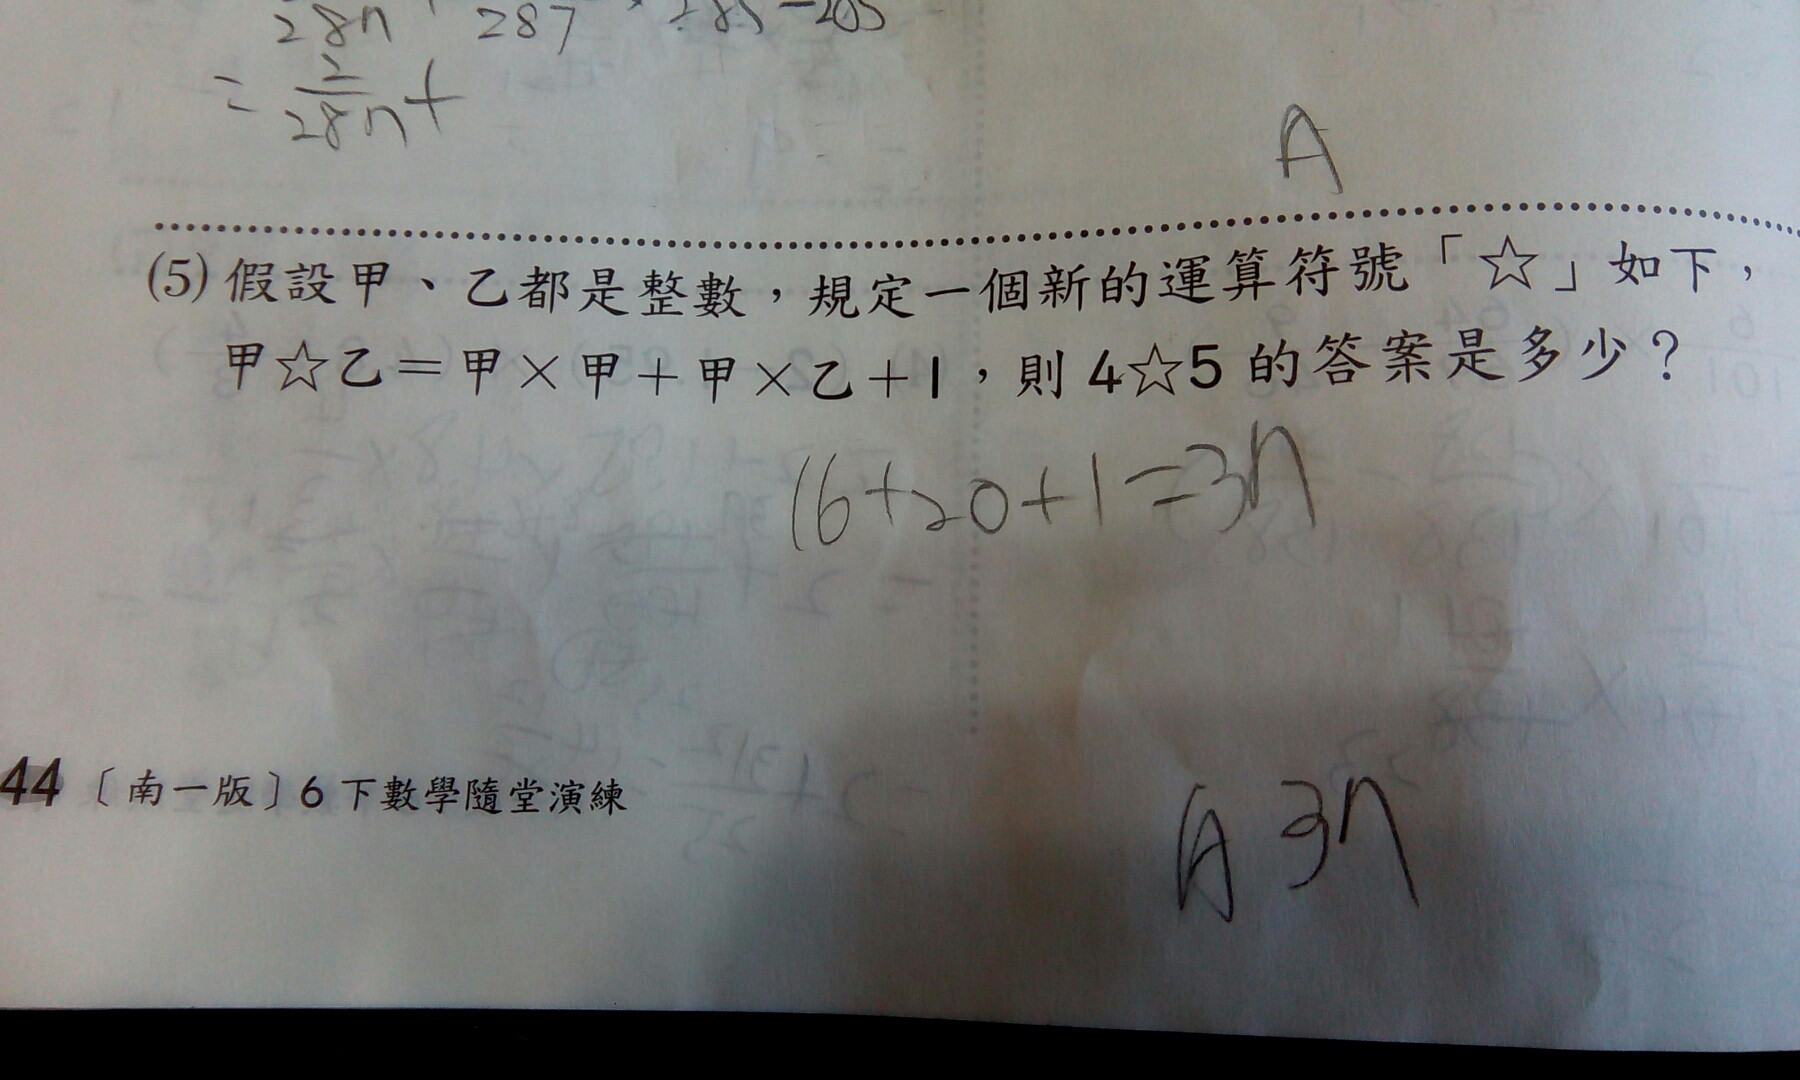 287 287 × 285-285
= 2/287 +
A
(5) 假設甲、乙都是整數，規定一個新的運算符號「☆」如下，
甲☆乙＝甲×甲＋甲×乙＋1，則 4☆5 的答案是多少？
16+20+1=37
A 37
44〔南一版〕6 下數學隨堂演練